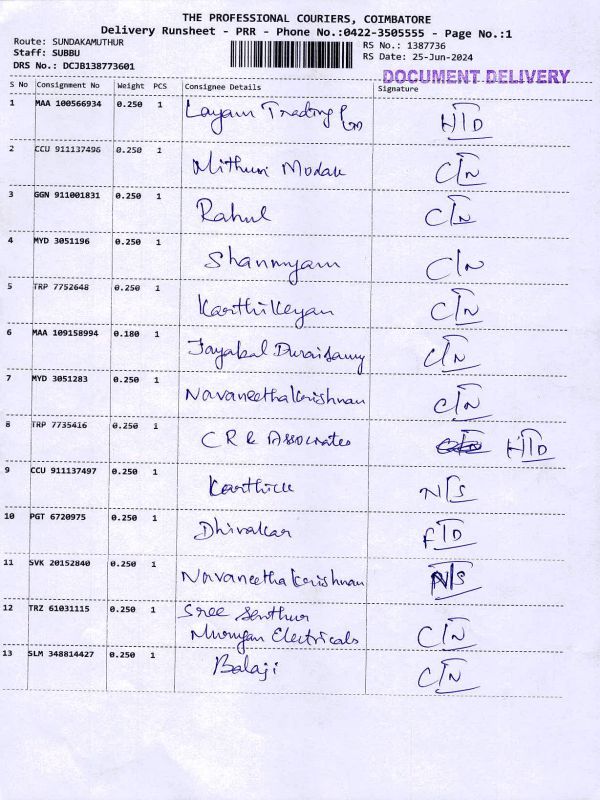 THE PROFESSIONAL COURIERS, COIMBATORE
Delivery Runsheet - PRR - Phone No.:0422-3505555 - Page No.:1
Route: SUNDAKAMUTHUR RS No.: 1387736
Staff: SUBBU RS Date: 25-Jun-2024
DRS No.: DCJB138773601 DOCUMENT DELIVERY
S No Consignment No Weight PCS Consignee Details Signature
1 MAA 100566934 0.250 1 Layam Trading H/D
2 CCU 911137496 0.250 1 Mithun Modak C/N
3 GGN 911001831 0.250 1 Rahul C/N
4 MYD 3051196 0.250 1 Shanmugam C/N
5 TRP 7752648 0.250 1 Karthikeyan C/N
6 MAA 109158994 0.180 1 Jayabal Duraisamy C/N
7 MYD 3051283 0.250 1 Navaneethakrishnan C/N
8 TRP 7735416 0.250 1 CRK Associates H/D
9 CCU 911137497 0.250 1 Karthick N/S
10 PGT 6720975 0.250 1 Dhivakar F/D
11 SVK 20152840 0.250 1 Navaneethakrishnan N/S
12 TRZ 61031115 0.250 1 Sree Senthur
Murugan Electricals C/N
13 SLM 348814427 0.250 1 Balaji C/N